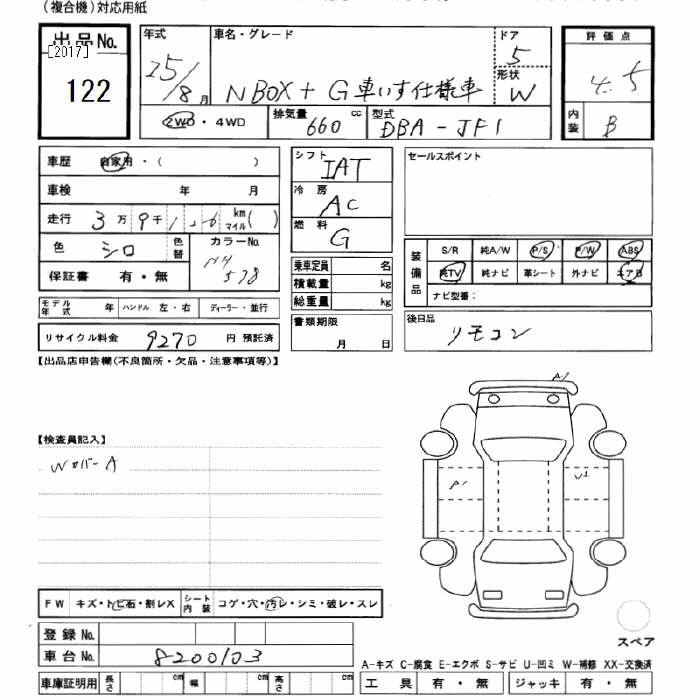 (複合機)対応用紙
出品No.
[2017]
122
年式
25/8月
車名・グレード
N BOX + G 車いす仕様車
ドア
5
形状
W
評価点
4.5
内装
B
2WD・4WD
排気量
660 cc
型式
DBA-JF1
車歴 自家用・( )
車検 年 月
走行 3万9千1 km マイル( )
色 シロ 色替 カラーNo.
NH578
保証書 有・無
モデル年式 年 ハンドル 左・右 ディーラー・並行
リサイクル料金 9270 円 預託済
シフト
IAT
冷房
AC
燃料
G
乗車定員 名
積載量 kg
総重量 kg
書類期限
月 日
セールスポイント
装備品
S/R 純A/W P/S P/W ABS
純TV 純ナビ 革シート 外ナビ エアB
ナビ型番:
後日品
リモコン
【出品店申告欄(不良箇所・欠品・注意事項等)】
【検査員記入】
Wカバー A
A1
A1
U1
FW キズ・トビ石・割レX シート内装 コゲ・穴・汚レ・シミ・破レ・スレ
登録No.
車台No. 8200103
車庫証明用 長さ cm 幅 cm 高さ cm
スペア
A-キズ C-腐食 E-エクボ S-サビ U-凹ミ W-補修 XX-交換済
工具 有・無 ジャッキ 有・無